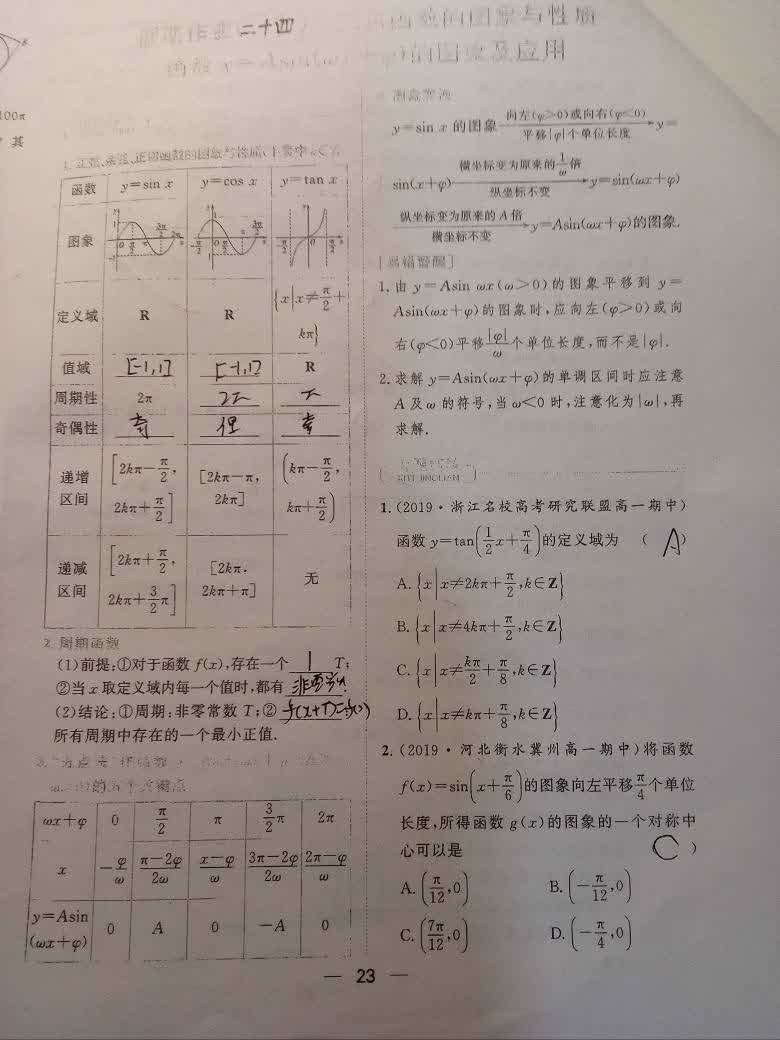 二十四
的图象与性质
的图象及应用
100π
其
函数 y=sin x y=cos x y=tan x
图象
定义域 R R {x|x≠π/2+kπ}
值域 [-1,1] [-1,1] R
周期性 2π 2π π
奇偶性 奇 偶 奇
递增区间 [2kπ-π/2, 2kπ+π/2] [2kπ-π, 2kπ] (kπ-π/2, kπ+π/2)
递减区间 [2kπ+π/2, 2kπ+3/2π] [2kπ, 2kπ+π] 无
2. 周期函数
(1)前提:①对于函数 f(x),存在一个 T;
②当 x 取定义域内每一个值时,都有
(2)结论:①周期:非零常数 T;② f(x+T)=f(x)
所有周期中存在的一个最小正值.
ωx+φ 0 π/2 π 3/2π 2π
x -φ/ω π-2φ/2ω π-φ/ω 3π-2φ/2ω 2π-φ/ω
y=Asin(ωx+φ) 0 A 0 -A 0
y=sin x 的图象 向左(φ>0)或向右(φ<0) 平移|φ|个单位长度 y=
sin(x+φ) 横坐标变为原来的1/ω倍 纵坐标不变 y=sin(ωx+φ)
纵坐标变为原来的 A 倍 横坐标不变 y=Asin(ωx+φ)的图象.
[易错警醒]
1. 由 y=Asin ωx(ω>0)的图象平移到 y=
Asin(ωx+φ)的图象时,应向左(φ>0)或向
右(φ<0)平移|φ|/ω个单位长度,而不是|φ|.
2. 求解 y=Asin(ωx+φ)的单调区间时应注意
A 及 ω 的符号,当 ω<0 时,注意化为|ω|,再
求解.
1. (2019·浙江名校高考研究联盟高一期中)
函数 y=tan(1/2x+π/4)的定义域为 ( A )
A. {x|x≠2kπ+π/2,k∈Z}
B. {x|x≠4kπ+π/2,k∈Z}
C. {x|x≠kπ/2+π/8,k∈Z}
D. {x|x≠kπ+π/8,k∈Z}
2. (2019·河北衡水冀州高一期中)将函数
f(x)=sin(x+π/6)的图象向左平移π/4个单位
长度,所得函数 g(x)的图象的一个对称中
心可以是 ( C )
A. (π/12,0) B. (-π/12,0)
C. (7π/12,0) D. (-π/4,0)
— 23 —